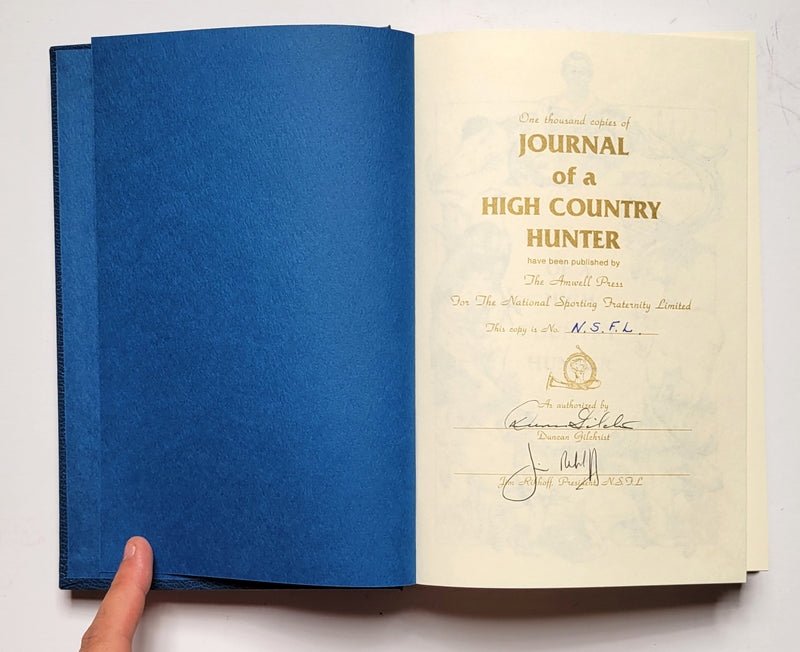 One thousand copies of
JOURNAL
of a
HIGH COUNTRY
HUNTER
have been published by
The Amwell Press
For The National Sporting Fraternity Limited
This copy is No. N.S.F.L.
As authorized by
Duncan Gilchrist
Jim Rikhoff, President, N.S.F.L.